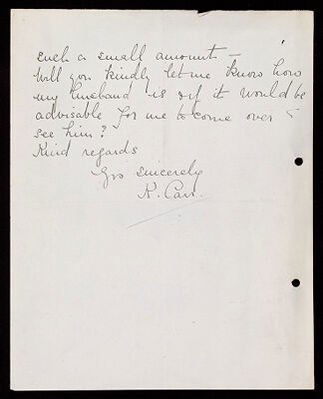 such a small amount —
Will you kindly let me know how
my husband is & if it would be
advisable for me to come over &
see him?
Kind regards
Yrs sincerely
K. Carr.